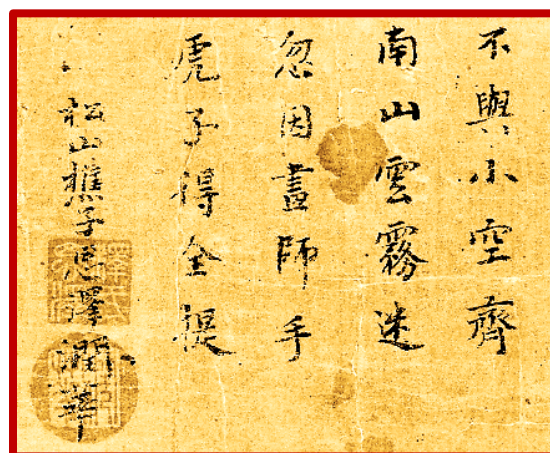 不與小空齊
南山雲霧迷
忽因畫師手
虎子得全提
松山樵子 澤